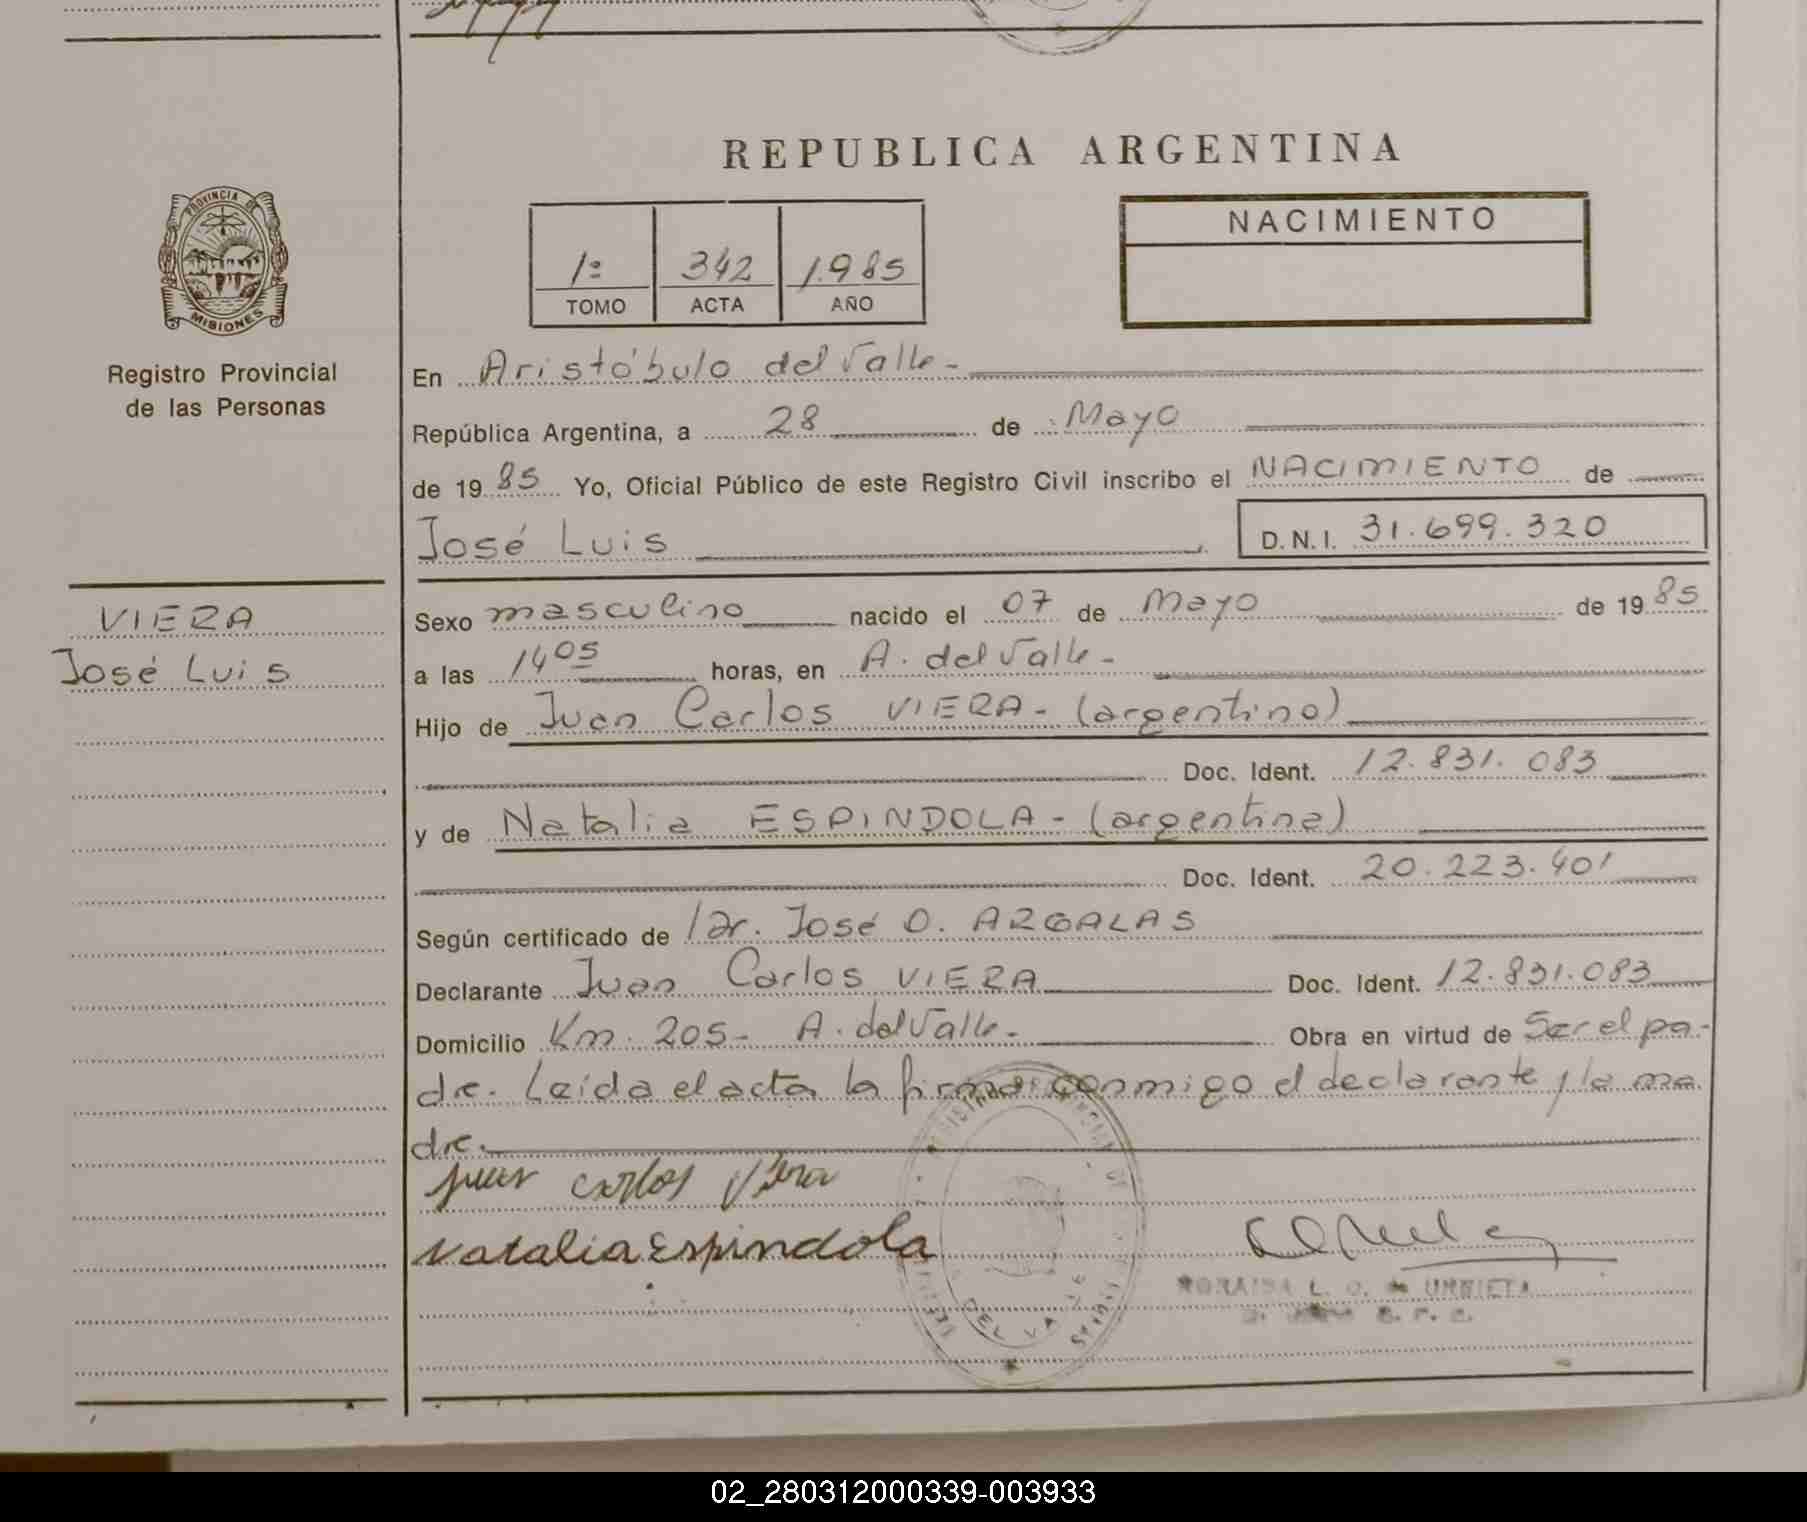 REPUBLICA ARGENTINA
PROVINCIA DE
MISIONES
Registro Provincial
de las Personas
1º 342 1.985
TOMO ACTA AÑO
NACIMIENTO
En Aristóbulo del Valle -
República Argentina, a 28 de Mayo
de 19 85 Yo, Oficial Público de este Registro Civil inscribo el NACIMIENTO de
José Luis D.N.I. 31.699.320
VIERA
José Luis
Sexo masculino nacido el 07 de Mayo de 19 85
a las 14 05 horas, en A. del Valle -
Hijo de Juan Carlos VIERA - (argentino)
Doc. Ident. 12.831.083
y de Natalia ESPINDOLA - (argentina)
Doc. Ident. 20.223.401
Según certificado de Dr. José O. ARGALAS
Declarante Juan Carlos VIERA Doc. Ident. 12.831.083
Domicilio Km. 205 - A. del Valle - Obra en virtud de Ser el pa-
dre. Leída el acta la firma conmigo el declarante y la ma
dre.
Juan carlos Viera
Natalia Espindola
DEL VALLE
L. O. de URRIETA
02_280312000339-003933